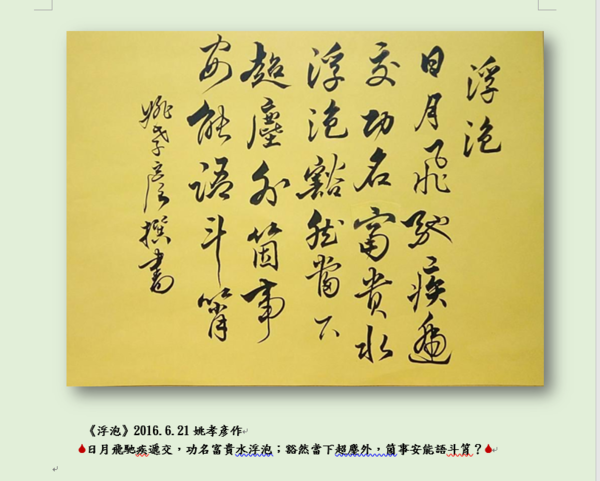 浮泡
日月飛馳疾遞
交功名富貴水
浮泡豁然當下
超塵外箇事
安能語斗筲
姚孝彥撰書
《浮泡》2016.6.21姚孝彥作
日月飛馳疾遞交，功名富貴水浮泡；豁然當下超塵外，箇事安能語斗筲？